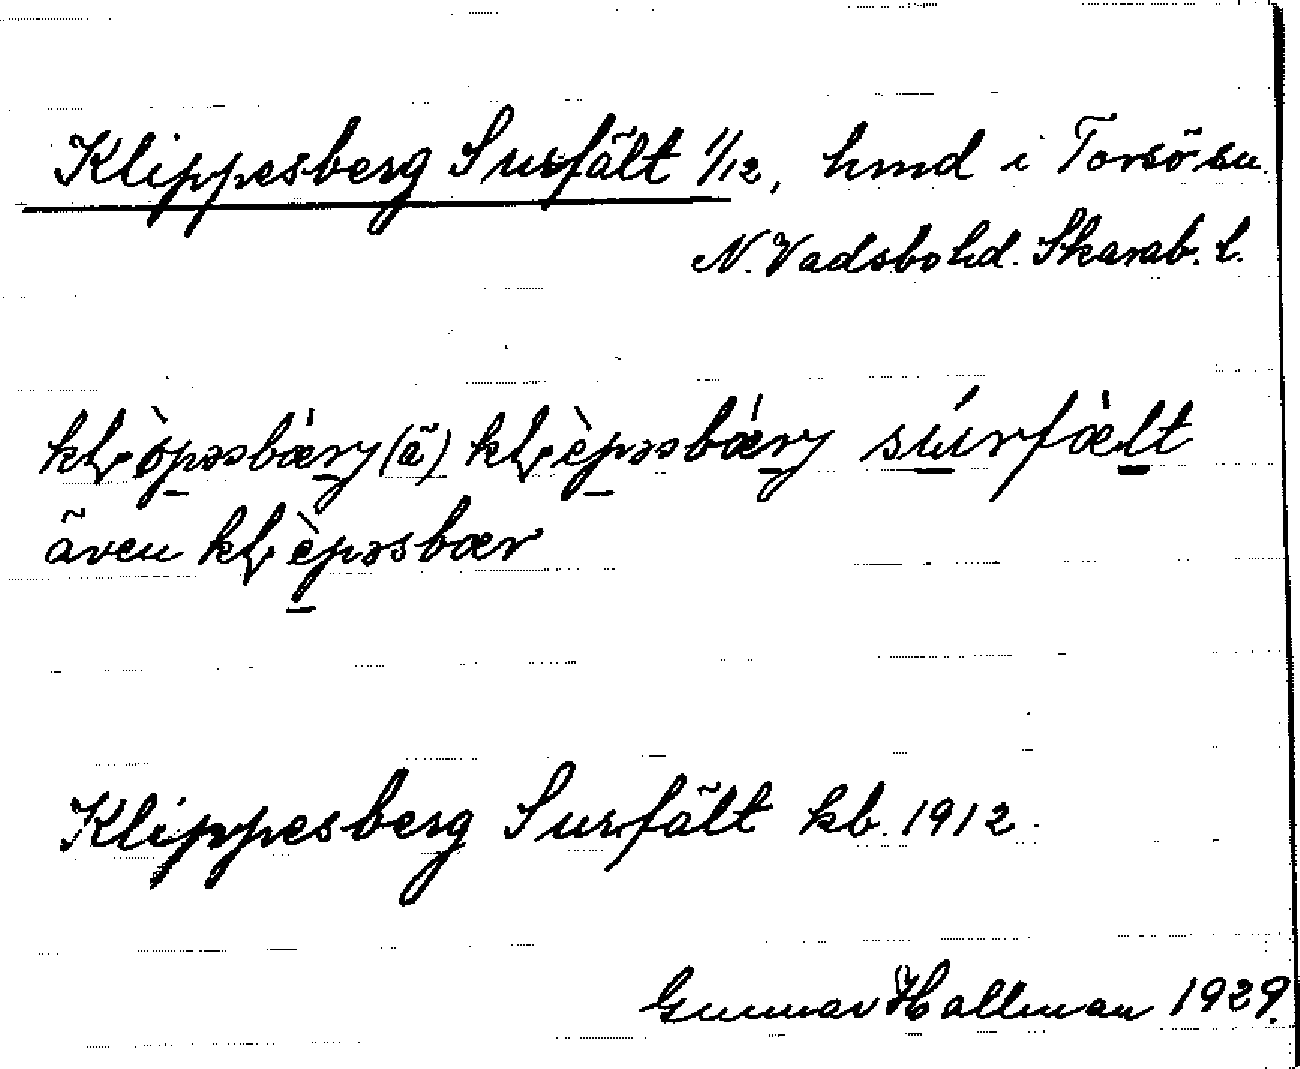 Klippesberg Surfält 1/12, hmd i Torsö sn.
N. Vadsbo hd. Skarab. l.
klèpəsbær̀y (ä) klèpəsbær̀y súrfæ̀lt
även klèpəsbær
Klippesberg Surfält kb. 1912.
Gunnar Hallman 1929.